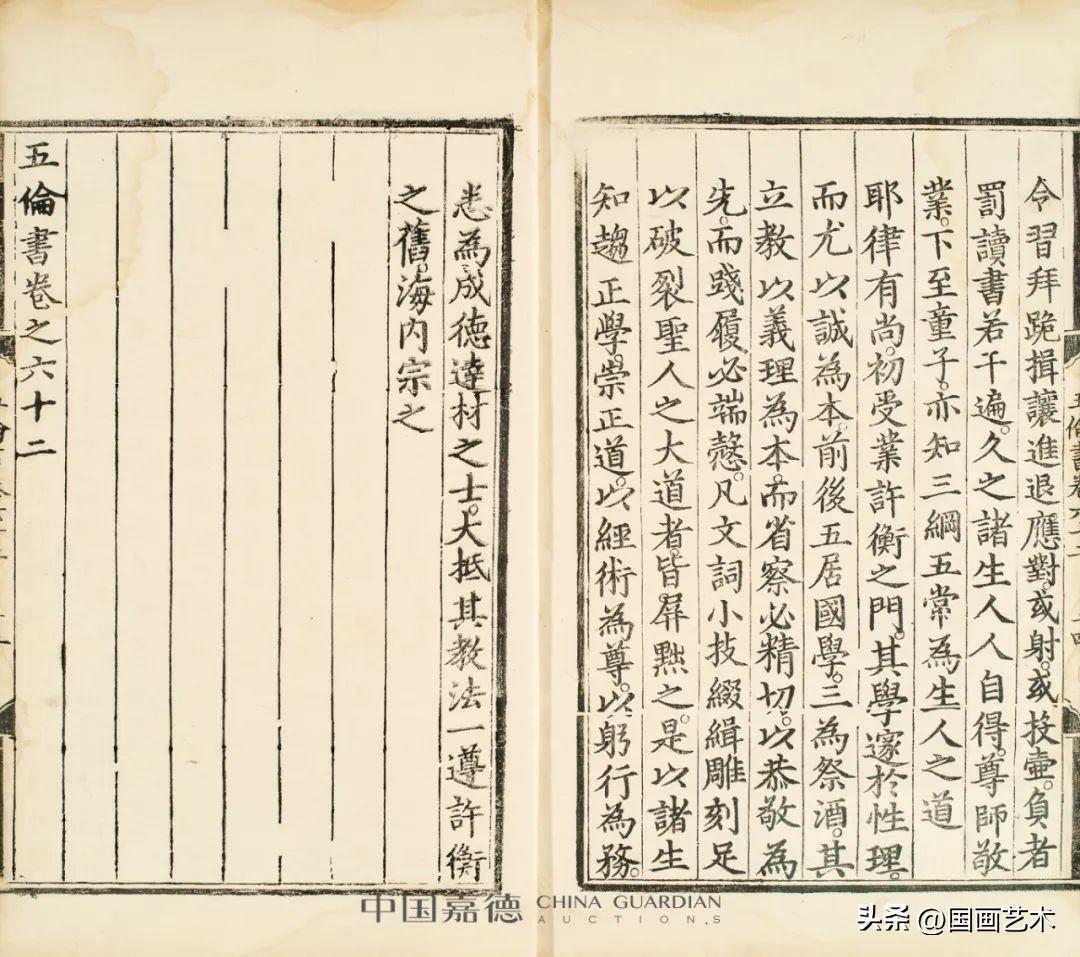 令習拜跪揖讓進退應對。或射。或投壺。負者
罰讀書若干遍。久之諸生人人自得。尊師敬
業。下至童子。亦知三綱五常為生人之道
耶律有尚。初受業許衡之門。其學邃於性理。
而尤以誠為本。前後五居國學。三為祭酒。其
立教以義理為本。而省察必精切。以恭敬為
先。而踐履必端愨。凡文詞小技綴緝雕刻足
以破裂聖人之大道者。皆屏黜之。是以諸生
知趨正學。崇正道。以經術為尊。以躬行為務。
悉為成德達材之士。大抵其教法一遵許衡
之舊。海内宗之
五倫書卷之六十二
中国嘉德 CHINA GUARDIAN
AUCTIONS
头条 @国画艺术